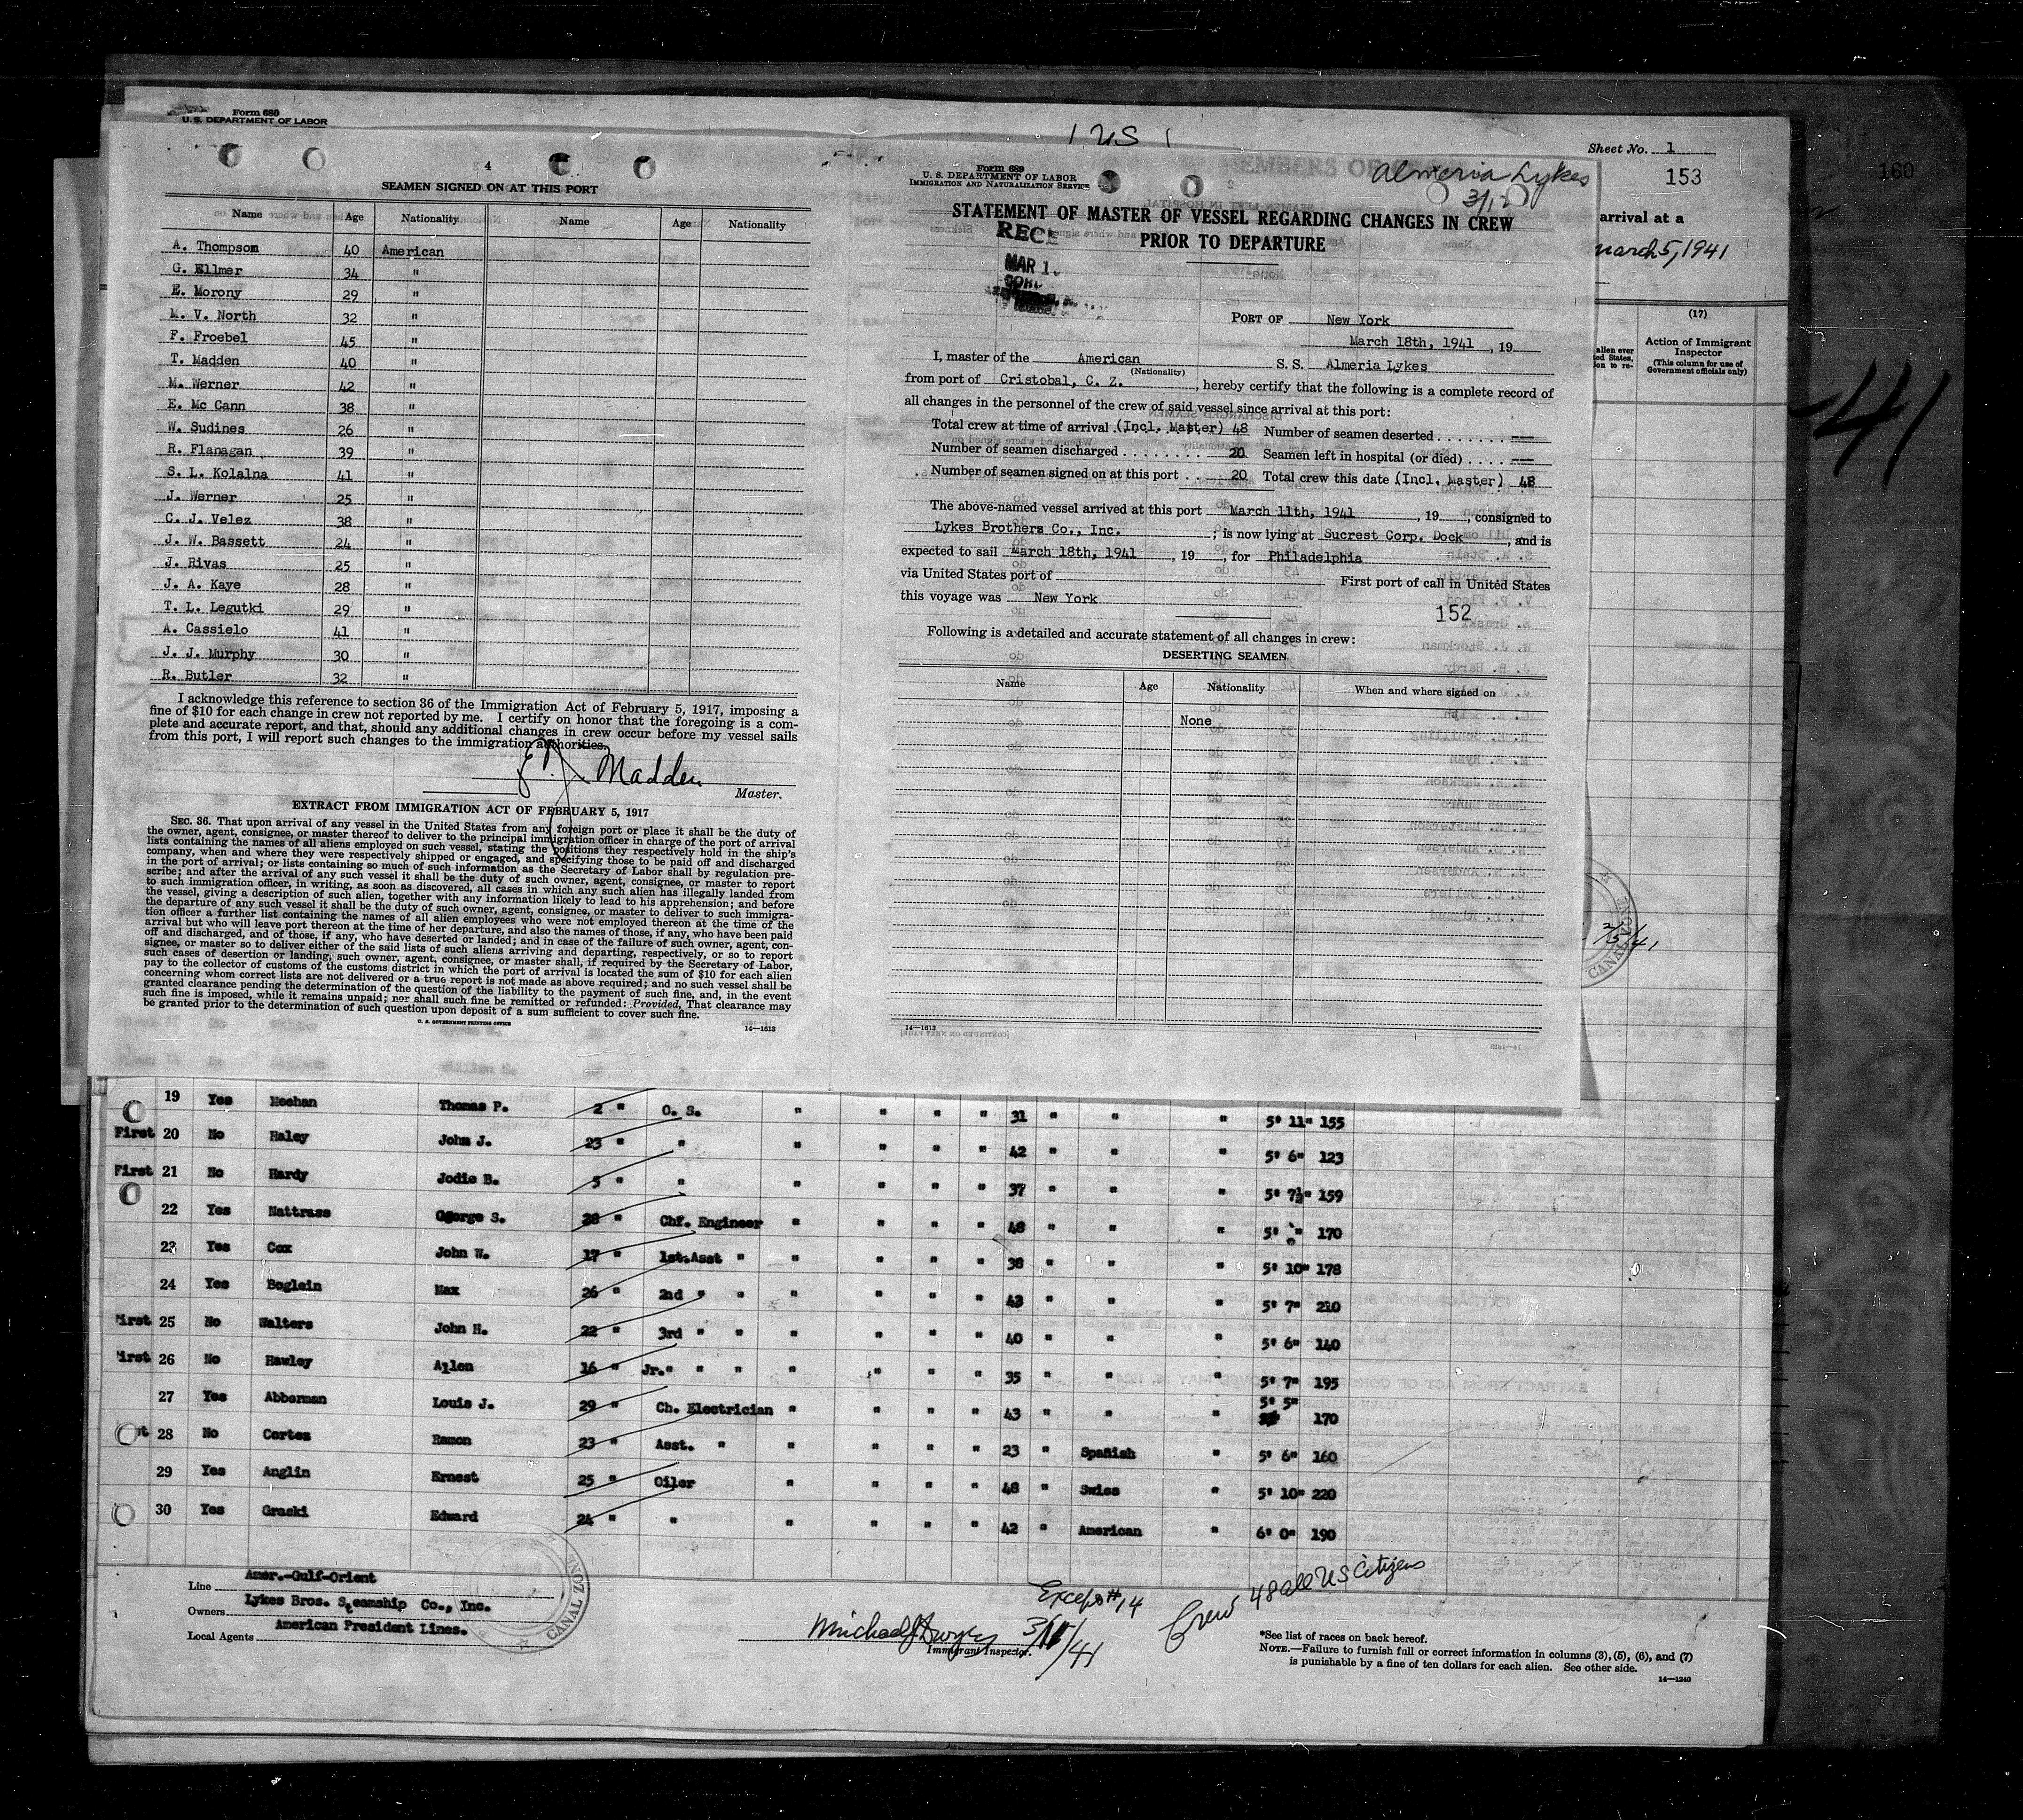 Form 689
U. S. DEPARTMENT OF LABOR
4
SEAMEN SIGNED ON AT THIS PORT
Name Age Nationality Name Age Nationality
A. Thompson 40 American
G. Ellmer 34 "
E. Morony 29 "
M. V. North 32 "
F. Froebel 45 "
T. Madden 40 "
M. Werner 42 "
E. Mc Cann 38 "
W. Sudines 26 "
R. Flanagan 39 "
S. L. Kolalna 41 "
J. Werner 25 "
C. J. Velez 38 "
J. W. Bassett 24 "
J. Rivas 25 "
J. A. Kaye 28 "
T. L. Legutki 29 "
A. Cassielo 41 "
J. J. Murphy 30 "
R. Butler 32 "
I acknowledge this reference to section 36 of the Immigration Act of February 5, 1917, imposing a
fine of $10 for each change in crew not reported by me. I certify on honor that the foregoing is a com-
plete and accurate report, and that, should any additional changes in crew occur before my vessel sails
from this port, I will report such changes to the immigration authorities.
Madden
Master.
EXTRACT FROM IMMIGRATION ACT OF FEBRUARY 5, 1917
SEC. 36. That upon arrival of any vessel in the United States from any foreign port or place it shall be the duty of
the owner, agent, consignee, or master thereof to deliver to the principal immigration officer in charge of the port of arrival
lists containing the names of all aliens employed on such vessel, stating the positions they respectively hold in the ship's
company, when and where they were respectively shipped or engaged, and specifying those to be paid off and discharged
in the port of arrival; or lists containing so much of such information as the Secretary of Labor shall by regulation pre-
scribe; and after the arrival of any such vessel it shall be the duty of such owner, agent, consignee, or master to report
to such immigration officer, in writing, as soon as discovered, all cases in which any such alien has illegally landed from
the vessel, giving a description of such alien, together with any information likely to lead to his apprehension; and before
the departure of any such vessel it shall be the duty of such owner, agent, consignee, or master to deliver to such immigra-
tion officer a further list containing the names of all alien employees who were not employed thereon at the time of the
arrival but who will leave port thereon at the time of her departure, and also the names of those, if any, who have been paid
off and discharged, and of those, if any, who have deserted or landed; and in case of the failure of such owner, agent, con-
signee, or master so to deliver either of the said lists of such aliens arriving and departing, respectively, or so to report
such cases of desertion or landing, such owner, agent, consignee, or master shall, if required by the Secretary of Labor,
pay to the collector of customs of the customs district in which the port of arrival is located the sum of $10 for each alien
concerning whom correct lists are not delivered or a true report is not made as above required; and no such vessel shall be
granted clearance pending the determination of the question of the liability to the payment of such fine, and, in the event
such fine is imposed, while it remains unpaid; nor shall such fine be remitted or refunded: Provided, That clearance may
be granted prior to the determination of such question upon deposit of a sum sufficient to cover such fine.
U. S. GOVERNMENT PRINTING OFFICE 14—1613
1 US 1
Form 689
U. S. DEPARTMENT OF LABOR
IMMIGRATION AND NATURALIZATION SERVICE
Almeria Lykes
STATEMENT OF MASTER OF VESSEL REGARDING CHANGES IN CREW
PRIOR TO DEPARTURE
MAR
PORT OF New York
March 18th, 1941, 19
I, master of the American S. S. Almeria Lykes
(Nationality)
from port of Cristobal, C. Z., hereby certify that the following is a complete record of
all changes in the personnel of the crew of said vessel since arrival at this port:
Total crew at time of arrival (Incl. Master) 48 Number of seamen deserted ---
Number of seamen discharged 20 Seamen left in hospital (or died) ---
Number of seamen signed on at this port 20 Total crew this date (Incl. Master) 48
The above-named vessel arrived at this port March 11th, 1941, 19, consigned to
Lykes Brothers Co., Inc.; is now lying at Sucrest Corp. Dock, and is
expected to sail March 18th, 1941, 19 for Philadelphia
via United States port of First port of call in United States
this voyage was New York
152
Following is a detailed and accurate statement of all changes in crew:
DESERTING SEAMEN
Name Age Nationality When and where signed on
None
14—1613
Sheet No. 1
153
160
arrival at a
March 5, 1941
(17)
Action of Immigrant
Inspector
(This column for use of
Government officials only)
alien ever
ed States,
on to re-
41
CANAL
19 Yes Meehan Thomas P. 2 " O. S. " " " " 31 " " " 5' 11" 155
First 20 No Haley John J. 23 " " " " " " 42 " " " 5' 6" 123
First 21 No Hardy Jodie B. 5 " " " " " " 37 " " " 5' 7½" 159
22 Yes Mattrass George S. 28 " Chf. Engineer " " " " 48 " " " 5' " 170
23 Yes Cox John W. 17 " 1st.Asst " " " " " 38 " " " 5' 10" 178
24 Yes Boglein Max 26 " 2nd " " " " " " 43 " " " 5' 7" 210
First 25 No Walters John H. 22 " 3rd " " " " " " 40 " " " 5' 6" 140
First 26 No Hawley Allen 16 " Jr." " " " " " " 35 " " " 5' 7" 195
27 Yes Abberman Louis J. 29 " Ch. Electrician " " " " 43 " " " 5' 5" 170
28 No Cortes Ramon 23 " Asst. " " " " " 23 " Spanish " 5' 6" 160
29 Yes Anglin Ernest 25 " Oiler " " " " 48 " Swiss " 5' 10" 220
30 Yes Graski Edward 24 " " " " " " 42 " American " 6' 0" 190
Line Amer.-Gulf-Orient
Owners Lykes Bros. Steamship Co., Inc.
Local Agents American President Lines.
CANAL ZONE
Except #14
Crew 48 all US Citizens
Michael J Dwyer 3/11/41
Immigrant Inspector.
*See list of races on back hereof.
NOTE.—Failure to furnish full or correct information in columns (3), (5), (6), and (7)
is punishable by a fine of ten dollars for each alien. See other side.
14—1240